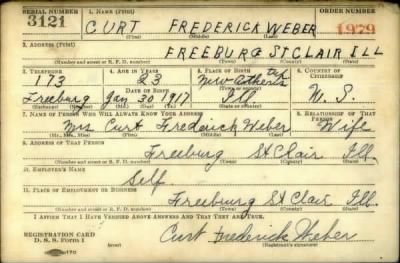 SERIAL NUMBER 1. NAME (Print) ORDER NUMBER
3121 CURT FREDERICK WEBER 1979
(First) (Middle) (Last)
2. ADDRESS (Print)
FREEBURG ST CLAIR ILL
(Number and street or R. F. D. number) (Town) (County) (State)
3. TELEPHONE 4. AGE IN YEARS 5. PLACE OF BIRTH 6. COUNTRY OF CITIZENSHIP
173 23 New Athens
Freeburg Jan 30 1917 Ill U. S.
(Exchange) (Number) (Mo.) (Day) (Yr.) (State or country)
7. NAME OF PERSON WHO WILL ALWAYS KNOW YOUR ADDRESS 8. RELATIONSHIP OF THAT PERSON
Mrs Curt Frederick Weber Wife
(Mr., Mrs., Miss) (First) (Middle) (Last)
9. ADDRESS OF THAT PERSON
Freeburg St Clair Ill.
(Number and street or R. F. D. number) (Town) (County) (State)
10. EMPLOYER'S NAME
Self
11. PLACE OF EMPLOYMENT OR BUSINESS
Freeburg St Clair Ill.
(Number and street or R. F. D. number) (Town) (County) (State)
I AFFIRM THAT I HAVE VERIFIED ABOVE ANSWERS AND THAT THEY ARE TRUE.
REGISTRATION CARD
D. S. S. Form 1 Curt Frederick Weber
(Registrant's signature)